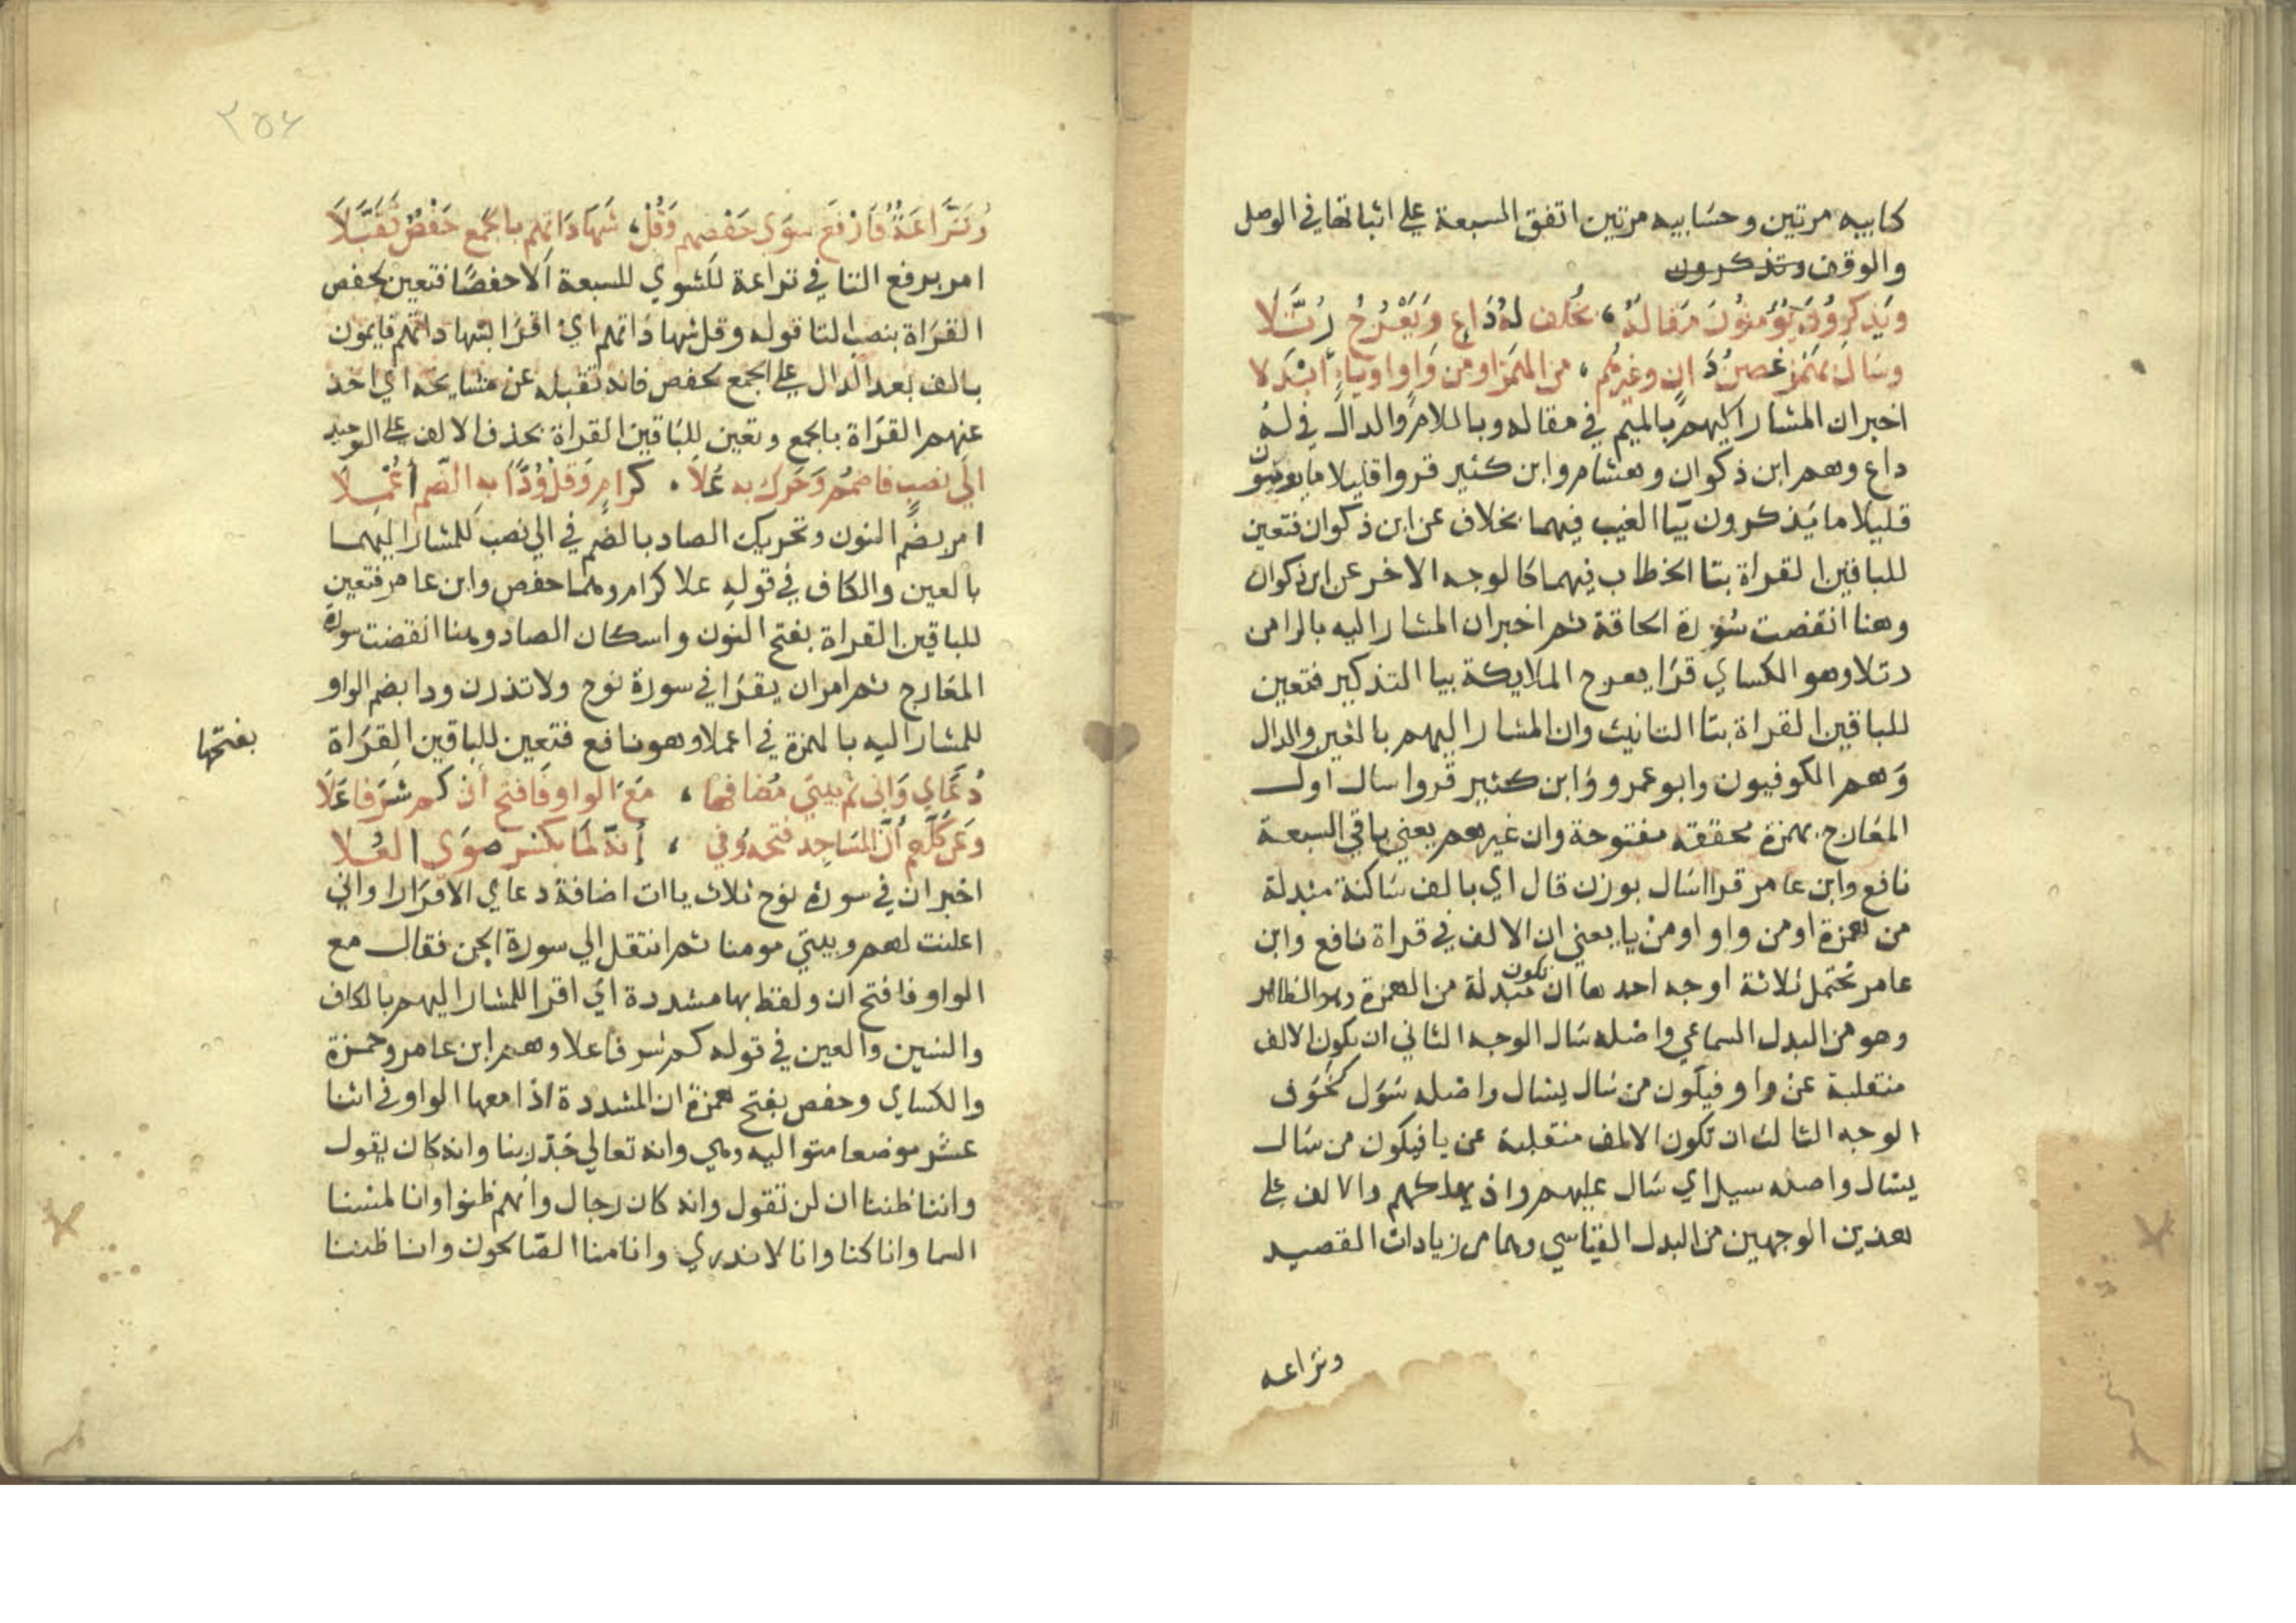 كتابيه مرتين وحسابيه مرتين اتفق السبعة علي اثباتها في الوصل
والوقف وتذكرون
ويذكرون يؤمنون مقاله ، بخلف له داع ويعرج رتلا
وسال بهمز غصن دان وغيرهم ، من الهمز او من واو او ياء أبدلا
اخبران المشار اليهم بالميم في مقاله وباللام والدال في له
داع وهم ابن ذكوان وهشام وابن كثير قروا قليلا ما يومنون
قليلا ما يذكرون بيا الغيب فيهما بخلاف عن ابن ذكوان فتعين
للباقين القراة بتا الخطاب فيهما كالوجه الاخر عن ابن ذكوان
وهنا انقضت سورة الحاقة ثم اخبران المشار اليه بالرا من
رتلا وهو الكساي قرا يعرج الملايكة بيا التذكير فتعين
للباقين القراة بتا التانيث وان المشار اليهم بالغين والدال
وهم الكوفيون وابو عمرو وابن كثير قروا سال اول
المعارج بهمزة محققه مفتوحة وان غيرهم يعني باقي السبعة
نافع وابن عامر قرا اسال بوزن قال اي بالف ساكنة مبدلة
من همزة او من واو او من يا يعني ان الالف في قراة نافع وابن
عامر تحتمل ثلاثة اوجه احدها ان تكون مبدلة من الهمزة وهو الظاهر
وهو من البدل السماعي واصله سال الوجه الثاني ان يكون الالف
منقلبة عن واو فيكون من سال يسال واصله سول كخوف
الوجه الثالث ان تكون الالف منقلبة عن يا فيكون من سال
يسال واصله سيل اي سال عليهم واذ يهلكهم والالف علي
هذين الوجهين من البدل القياسي وهما من زيادات القصيد
ونزاعه
٢٥٤
ونزاعة فارفع سوي حفصهم وقل ، شهاداتهم بالجمع حفص تقبلا
امر برفع التا في نزاعة للشوي للسبعة الا حفصا فتعين لحفص
القراة بنصب التا قوله وقل شهاداتهم اي اقرا بشهاداتهم قايمون
بالف بعد الدال علي الجمع لحفص فانه تقبله عن مشايخه اي اخذ
عنهم القراة بالجمع وتعين للباقين القراة بحذف الالف علي التوحيد
الي نصب فاضمم وحرك به علا . كرام وقل ودا به الضم أعملا
امر بضم النون وتحريك الصاد بالضم في الي نصب للمشار اليهما
بالعين والكاف في قوله علا كرام وهما حفص وابن عامر فتعين
للباقين القراة بفتح النون واسكان الصاد وهنا انقضت سورة
المعارج ثم امران يقرا في سورة نوح ولا تذرن ودا بضم الواو
للمشار اليه بالهمزة في اعملا وهو نافع فتعين للباقين القراة
بفتحها
دعاي واني ثم بيتي مضافها ، مع الواو فافتح ان كم شرفا علا
وعن كلهم أن المساجد فتحه وفي ، أنه لما بكسر صوي العلا
اخبران في سورة نوح ثلاث ياات اضافة دعاي الا فرارا واني
اعلنت لهم وبيتي مومنا ثم انتقل الي سورة الجن فقال مع
الواو فافتح ان ولفظ بها مشددة اي اقرا للمشار اليهم بالكاف
والشين والعين في قوله كم شرفا علا وهم ابن عامر وحمزة
والكساي وحفص بفتح همزة ان المشددة اذا معها الواو في اثنا
عشر موضعا متواليه وهي وانه تعالي جد ربنا وانه كان يقول
وانا ظننا ان لن تقول وانه كان رجال وانهم ظنوا وانا لمسنا
السما وانا كنا وانا لا ندري وانا منا الصالحون وانا ظننا